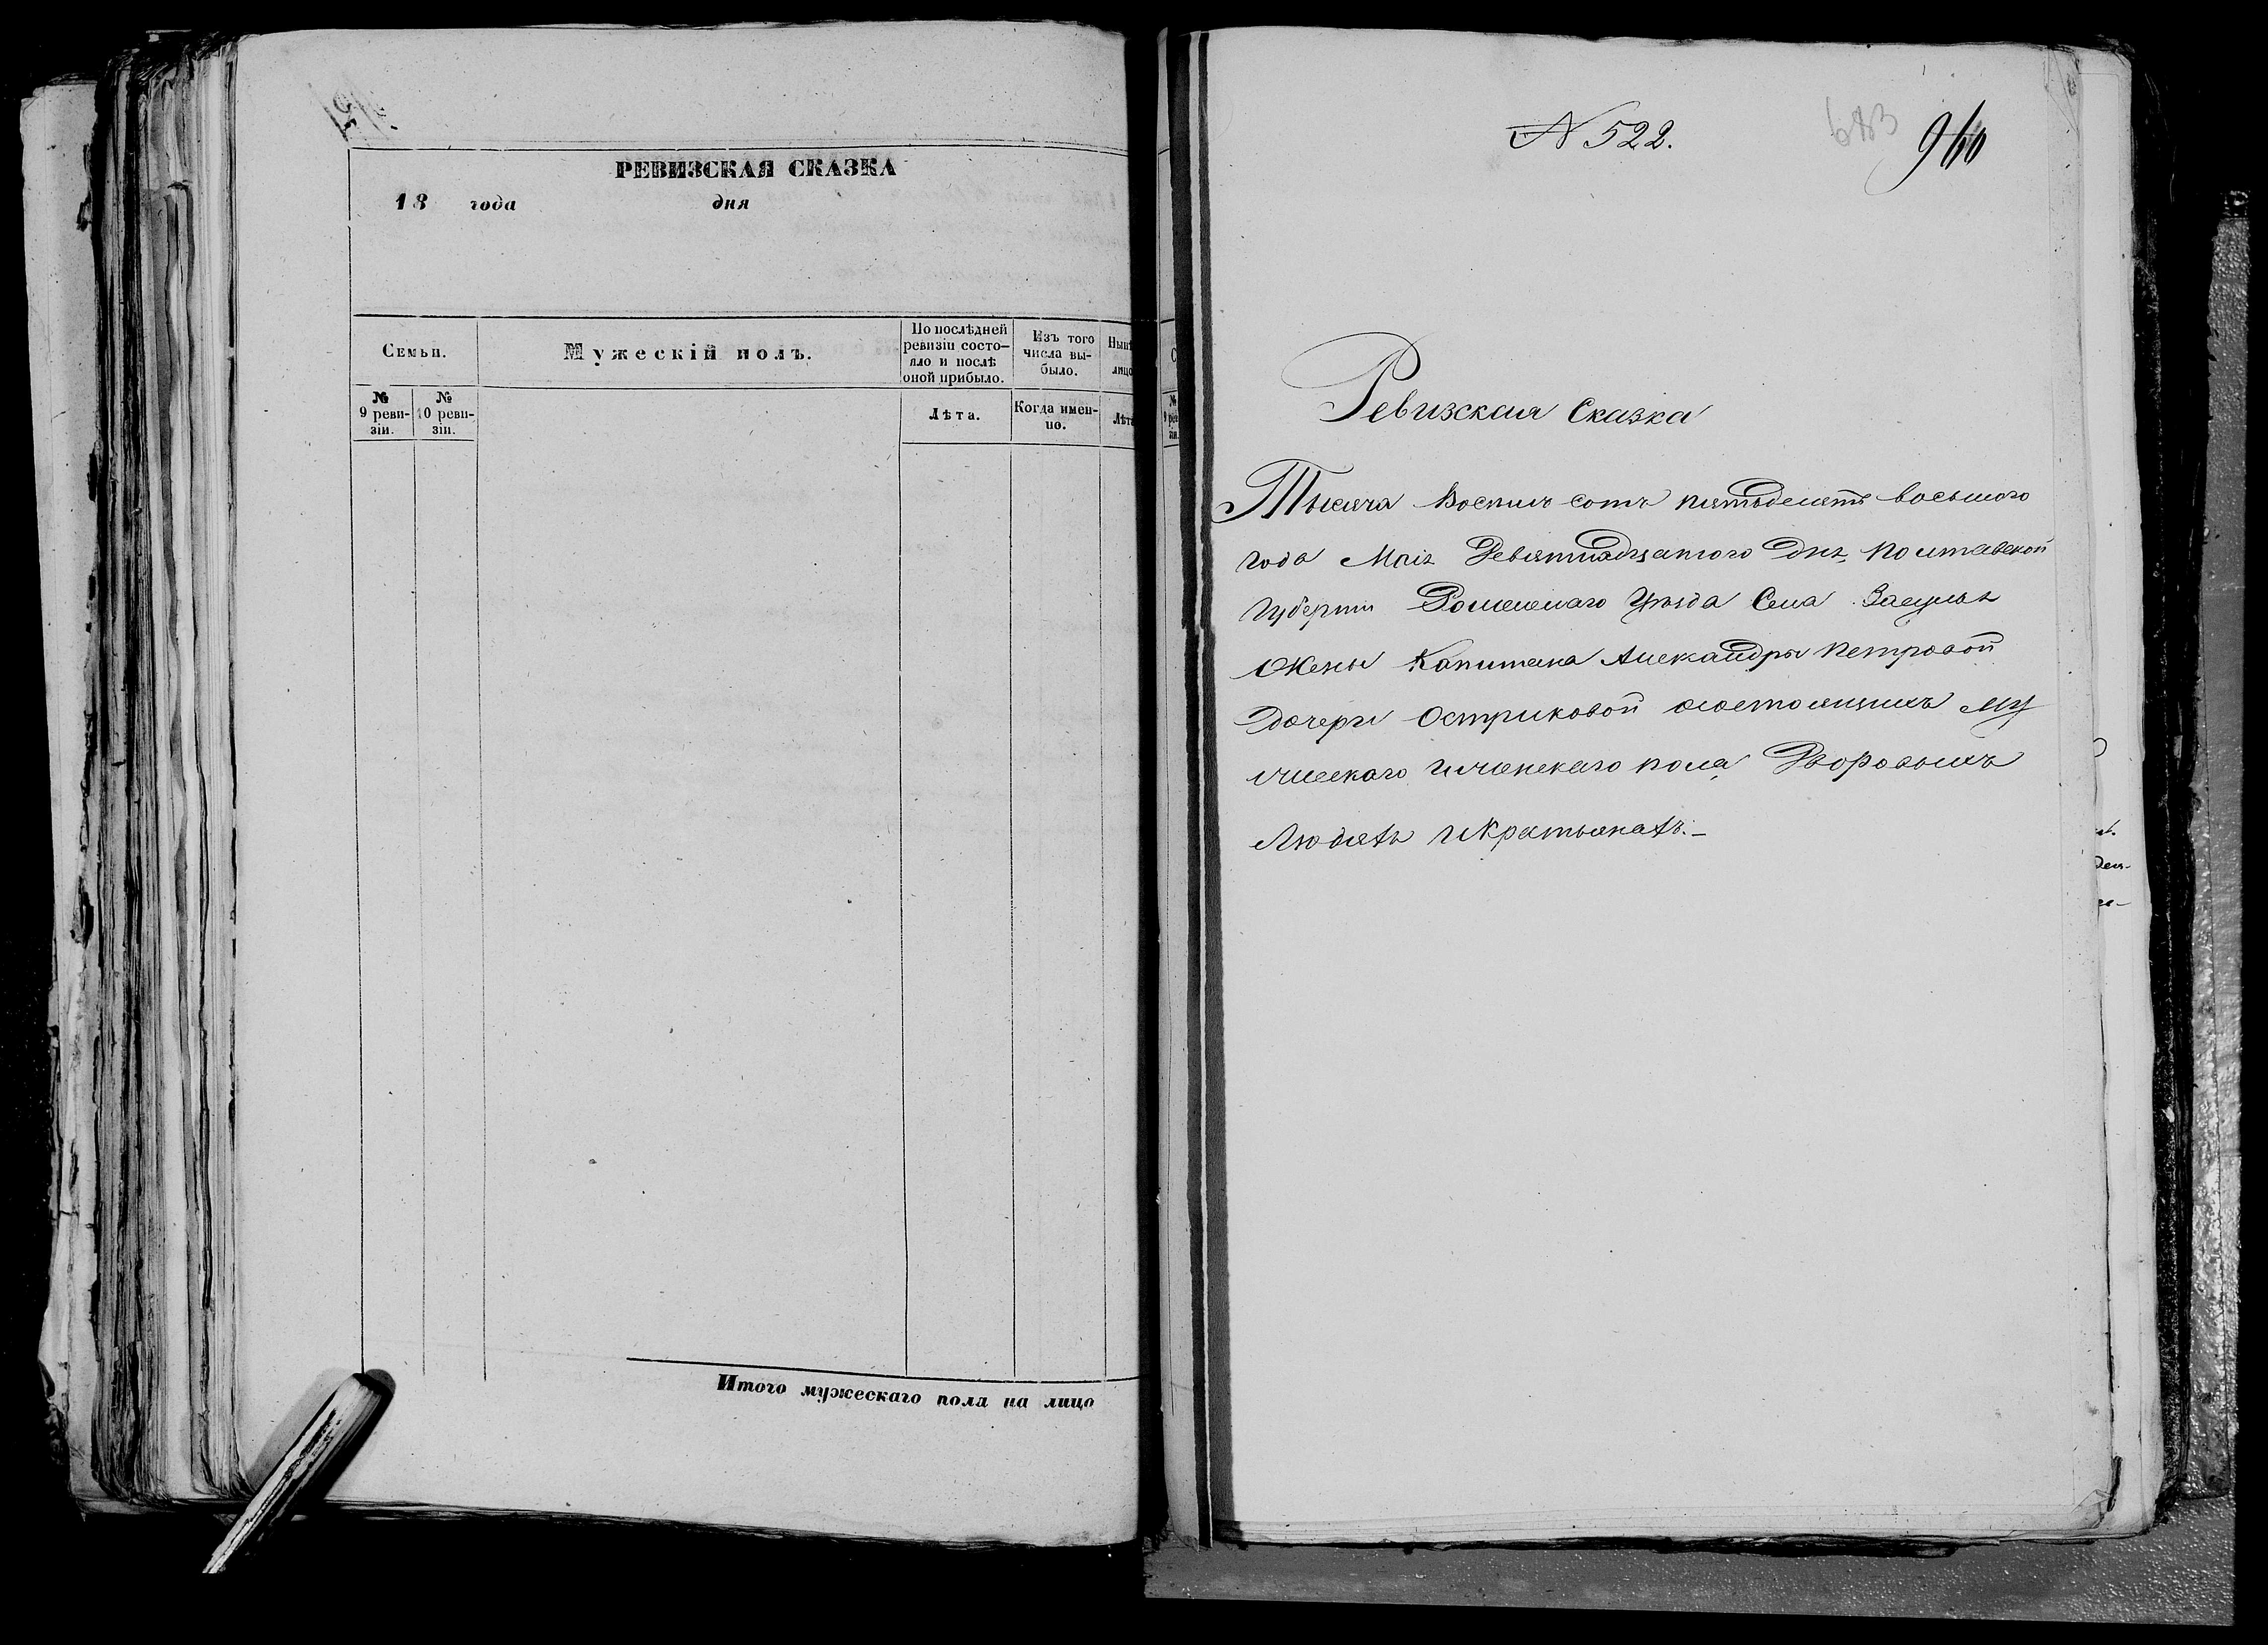 РЕВИЗСКАЯ СКАЗКА
18 года дня
Семьи.
Мужескій полъ.
По послѣдней ревизіи состо-
яло и послѣ
оной прибыло.
Изъ того
числа вы-
было.
№
9 реви-
зіи.
№
10 реви-
зіи.
Лѣта.
Когда имен-
но.
Итого мужескаго пола на лицо
№ 522.
960
Ревизская Сказка
Тысяча Восемь сотъ пятьдесятъ восьмого
года Маія Девятнадцатого Дня, Полтавской
Губерніи Роменскаго Уѣзда Села Засулья
Жены Капитана Александры Петровой
Дочери Остриковой о состоящихъ му
жескаго и женскаго пола Дворовыхъ
Людяхъ и Крестьянахъ.–